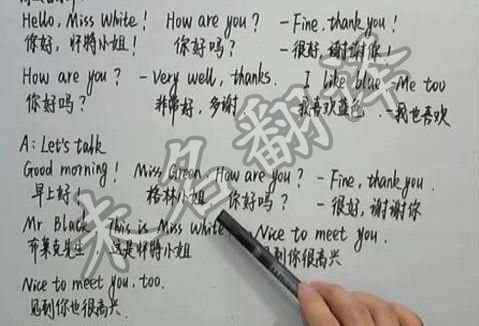 Hello, Miss White! How are you? - Fine, thank you!
你好,怀特小姐! 你好吗? - 很好,谢谢你!
How are you? - Very well, thanks. I like blue - Me too
你好吗? 非常好,多谢. 我喜欢蓝色 - 我也喜欢
A: Let's talk
Good morning! Miss Green, How are you? - Fine, thank you.
早上好! 格林小姐 你好吗? - 很好,谢谢你
Mr Black, This is Miss White. Nice to meet you.
布莱克先生,这是怀特小姐 见到你很高兴
Nice to meet you, too.
见到你也很高兴.